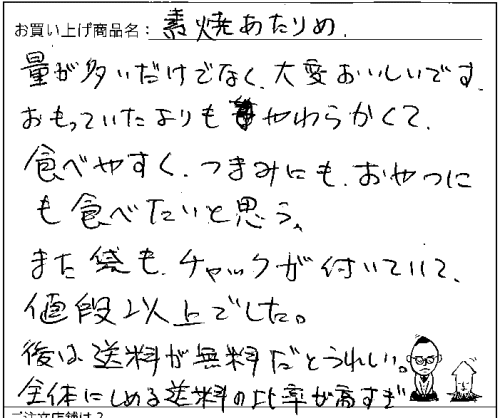 お買い上げ商品名: 素焼あたりめ.
量が多いだけでなく、大変おいしいです.
おもっていたよりもやわらかくて、
食べやすく、つまみにも、おやつに
も食べたいと思う。
また袋も、チャックが付いていて、
値段以上でした。
後は送料が無料だとうれしい。
全体にしめる送料の比率が高すぎ
ご注文店舗は?